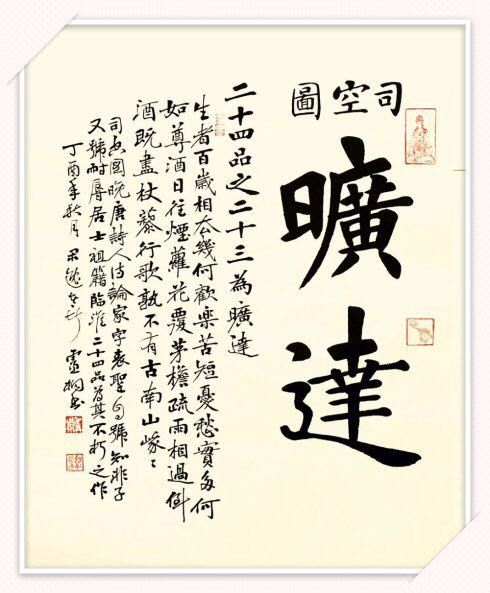 司空圖
曠達
二十四品之二十三為曠達
生者百歲相去幾何歡樂苦短憂愁實多何
如尊酒日往煙蘿花覆茅檐疏雨相過倒
酒既盡杖藜行歌孰不有古南山峩〻
司空圖晚唐詩人詩論家字表聖自號知非子
又號耐辱居士祖籍臨淮二十四品為其不朽之作
丁酉年秋月